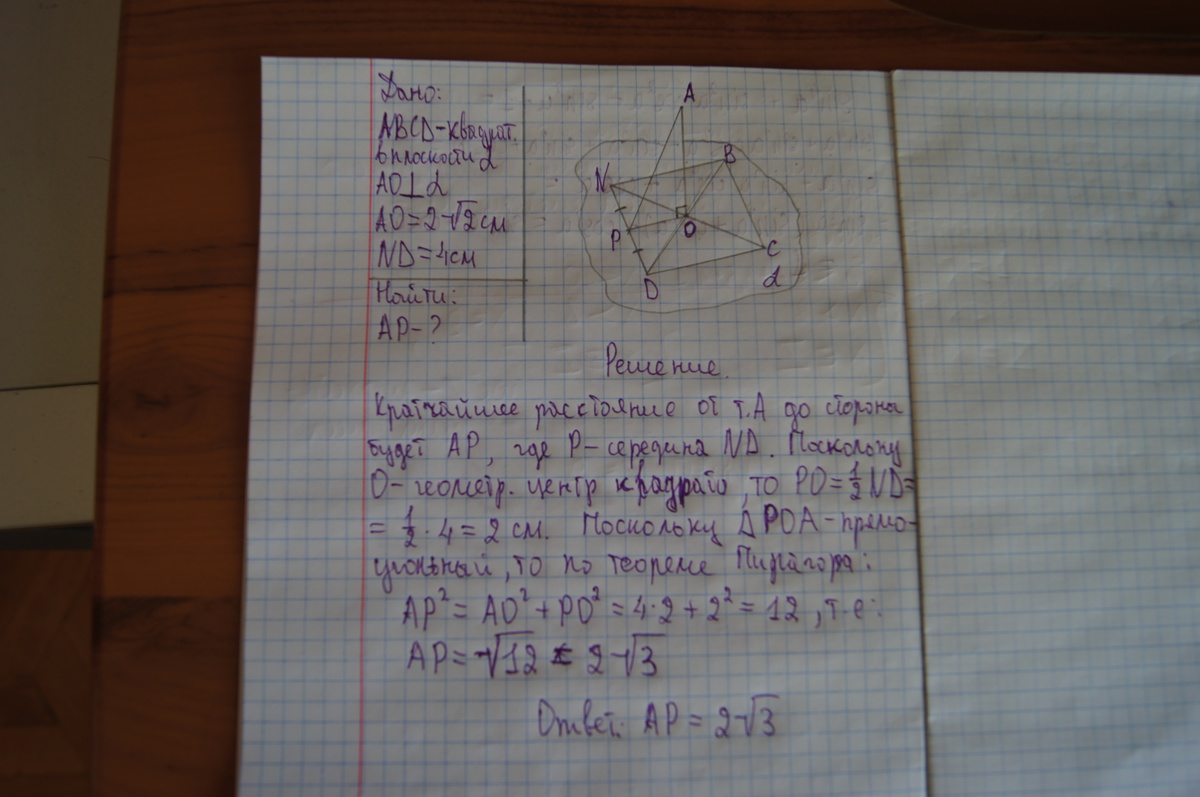 Дано:
ABCD-квадрат.
в плоскости α
AO⊥α
AO=2√2 см
ND=4см
Найти:
AP-?
A
N
B
P
O
C
D
α
Решение.
Кратчайшее расстояние от т.A до стороны
будет AP, где P- середина ND. Поскольку
O- геометр. центр квадрата, то PO=½ND=
= ½·4=2 см. Поскольку ΔPOA-прямо-
угольный, то по теореме Пифагора:
AP²=AO²+PO²=4·2+2²=12, т.е:
AP=√12=2√3
Ответ: AP=2√3